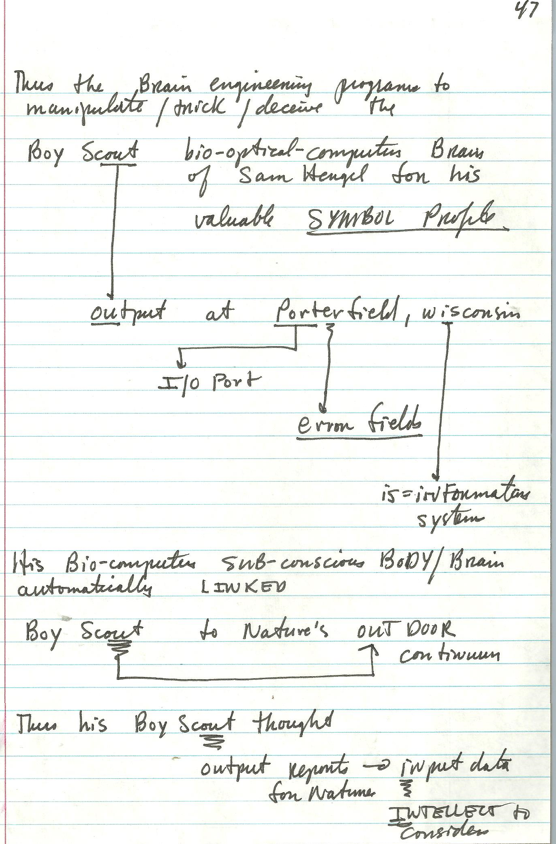 47
Thus the Brain engineering programs to
manipulate / trick / deceive the
Boy Scout bio-optical-computer Brain
of Sam Hengel for his
valuable SYMBOL Profile.
output at Porterfield, wisconsin
I/O Port
error fields
is = inFormation
system
His Bio-computer sub-conscious BODY/Brain
automatically LINKED
Boy Scout to Nature's OUT DOOR
continuum
Thus his Boy Scout thought
output reports → input data
for Natures
INTELLECT to
Consider